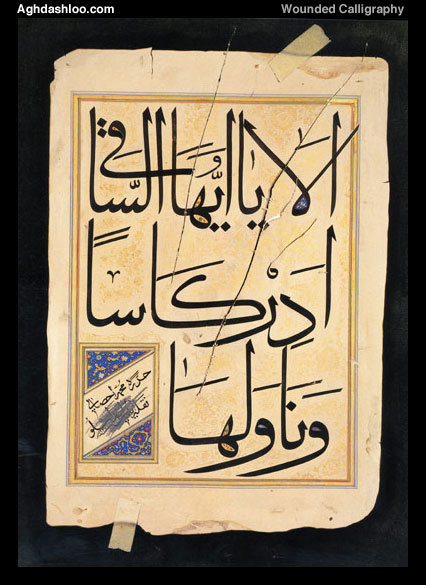 Aghdashloo.com
Wounded Calligraphy
الا يا ايُّهَا السَّاقى
ادَِرْ كَاسًا
وَنَاوَلهَا
محمد احصائى